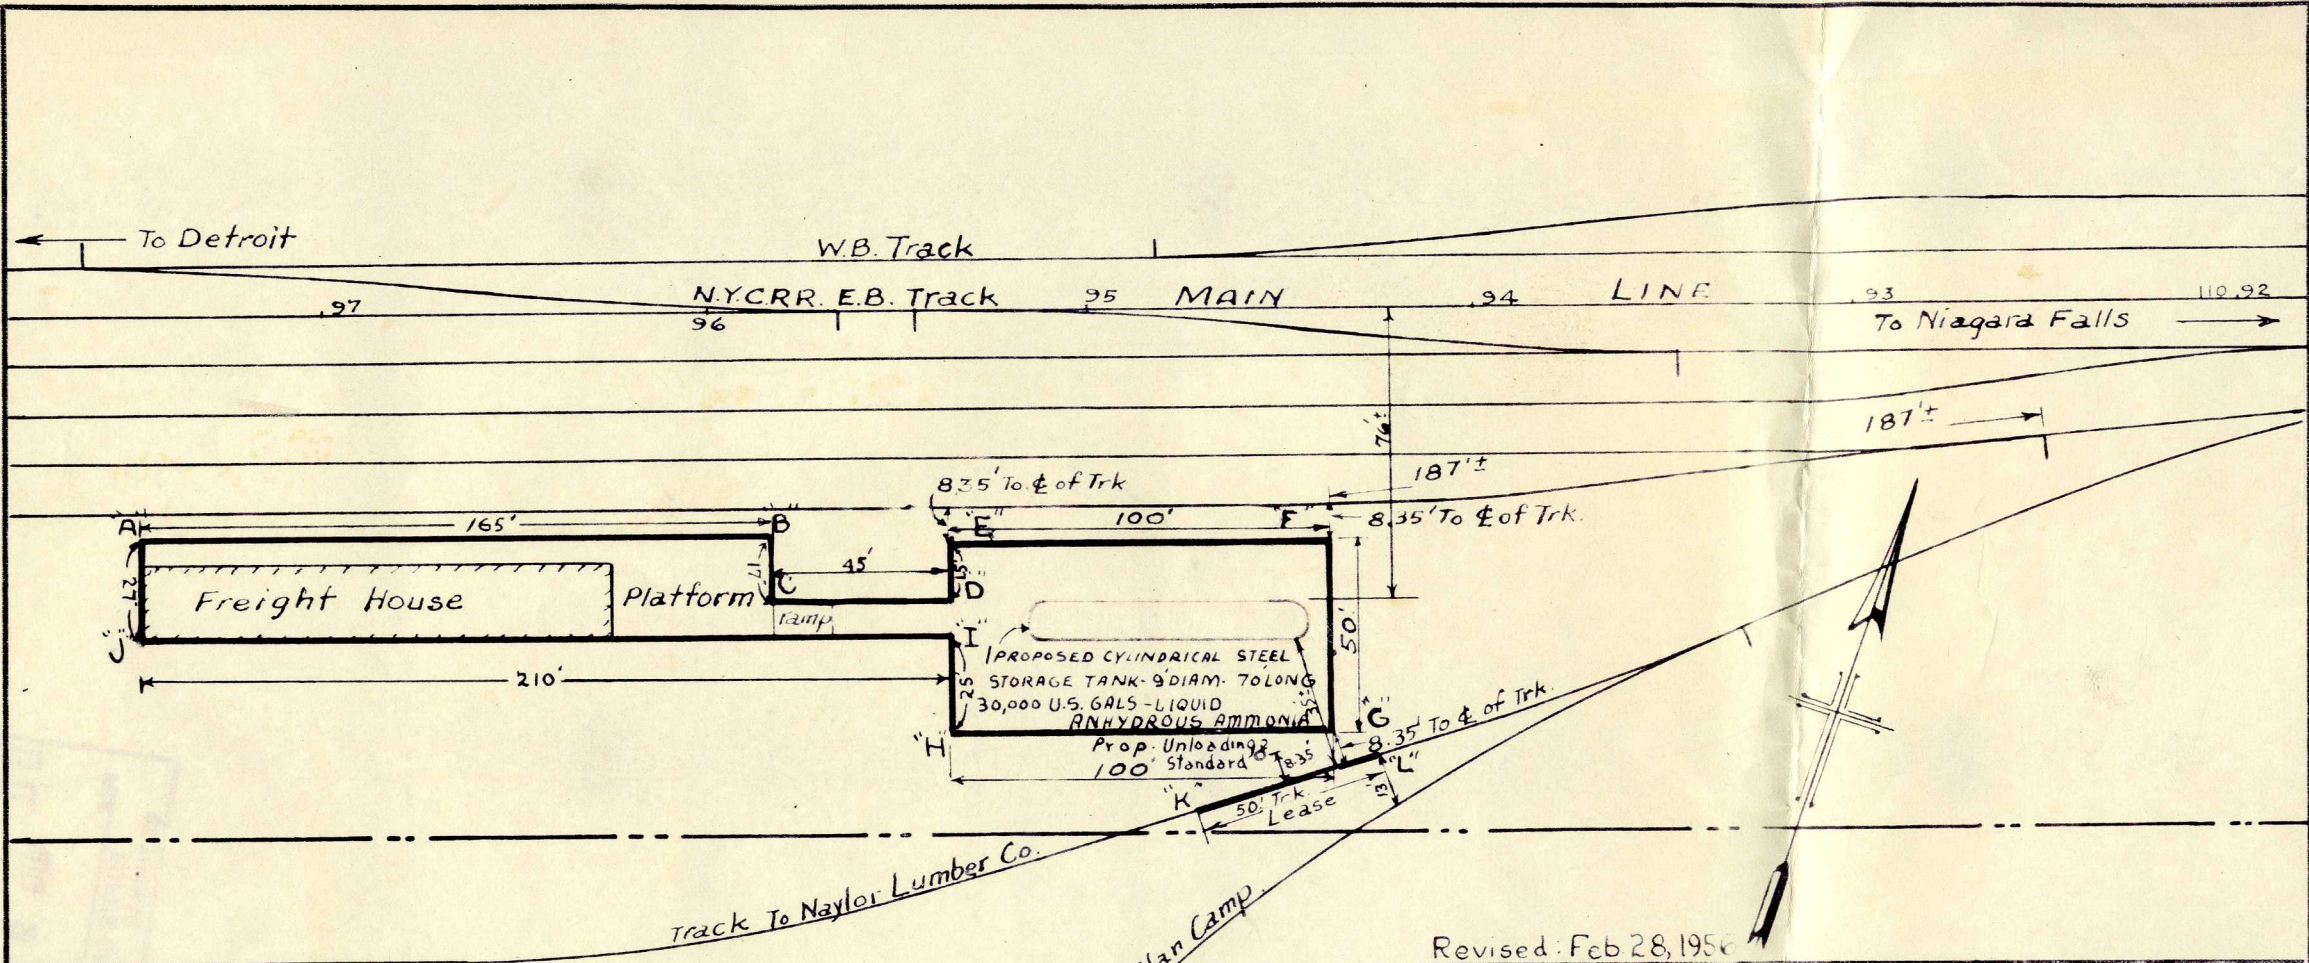 To Detroit
W.B. Track
N.Y.C.RR. E.B. Track
MAIN LINE
97
96
95
94
93
110.92
To Niagara Falls
76'±
187'±
187'±
8.35' To ℄ of Trk
8.35' To ℄ of Trk.
"A"
165'
"B"
"E"
100'
"F"
27'
17'
"C"
45'
15'
"D"
Freight House
Platform
ramp
50'
"J"
210'
"I"
25'
PROPOSED CYLINDRICAL STEEL
STORAGE TANK - 9' DIAM - 70' LONG
30,000 U.S. GALS - LIQUID
ANHYDROUS AMMONIA
35'±
"G"
8.35' To ℄ of Trk.
"H"
Prop. Unloading
Standard
100'
8.35'
"L"
"K"
50' Trk.
Lease
13'
Track To Naylor Lumber Co.
Camp
Revised: Feb. 28, 1956